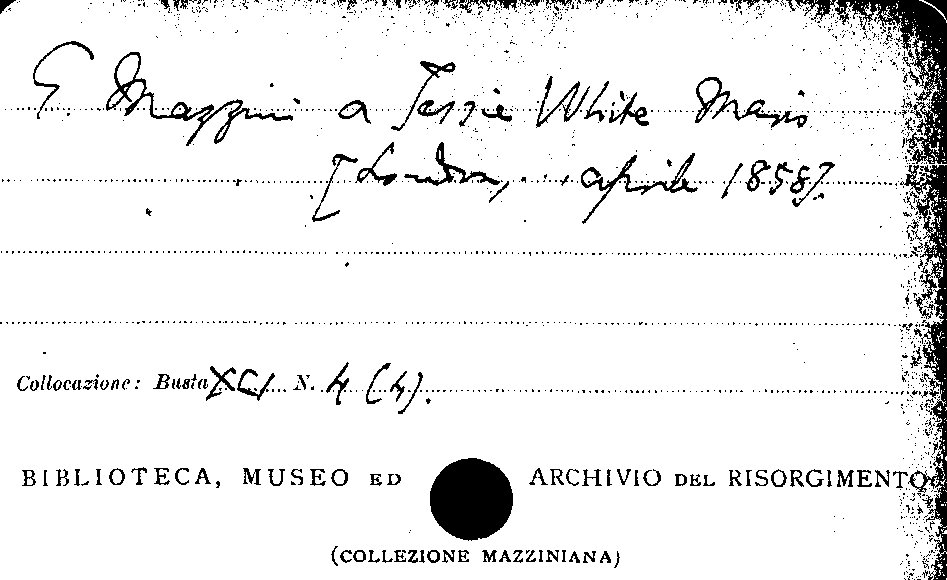 G. Mazzini a Jessie White Mario
[Londra, ... aprile 1858].
Collocazione: Busta XCI N. 4 (4).
BIBLIOTECA, MUSEO ED ARCHIVIO DEL RISORGIMENTO
(COLLEZIONE MAZZINIANA)